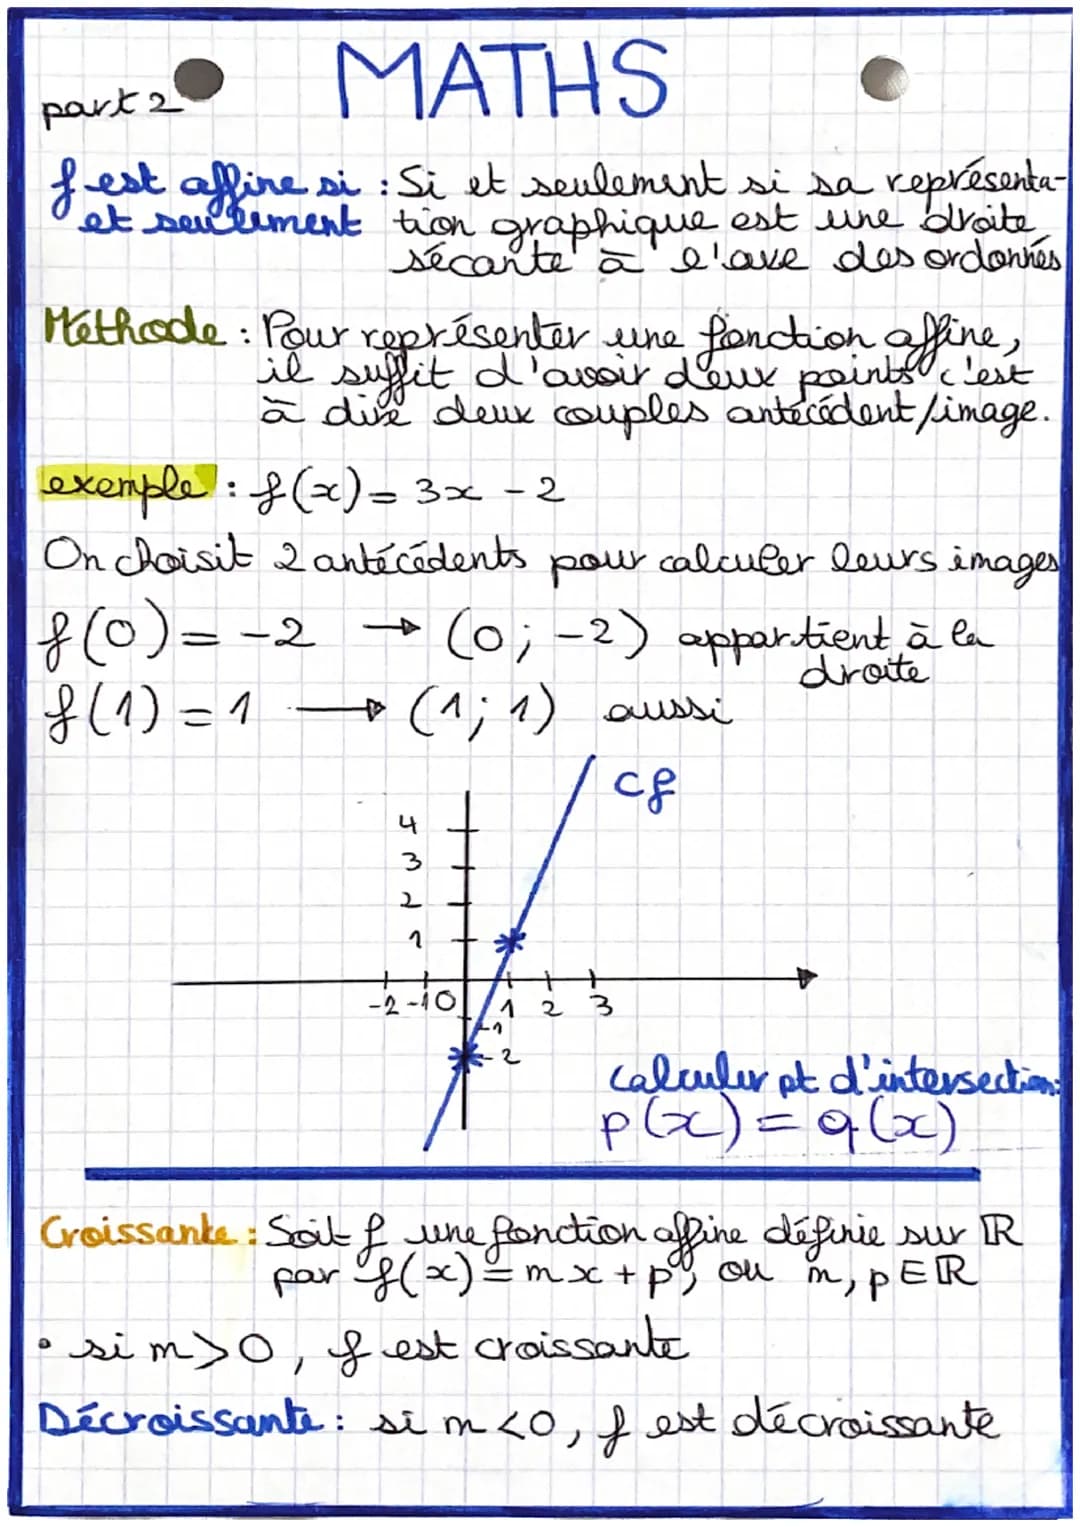 MATHS
part 2
f est affine si : Si et seulement si sa représenta-
et seulement tion graphique est une droite
sécante à l'axe des ordonnés
Méthode : Pour représenter une fonction affine,
il suffit d'avoir deux points c'est
à dire deux couples antécédent/image.
exemple : f(x) = 3x - 2
On choisit 2 antécédents pour calculer leurs images
f(0) = -2 → (0; -2) appartient à la
droite
f(1) = 1 → (1; 1) aussi
Cf
4
3
2
1
-2 -1 0 1 2 3
-1
-2
calculer pt d'intersection:
p(x) = q(x)
Croissante : Soit f une fonction affine définie sur ℝ
par f(x) = mx + p, ou m, p ∈ ℝ
• si m > 0, f est croissante
Décroissante : si m < 0, f est décroissante